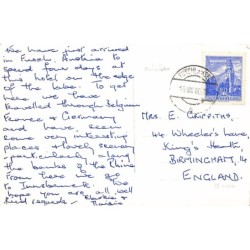 We have just arrived
in Fusch, Austria to
spend four days at
this hotel on the edge
of the lake. To get
here we have
travelled through Belgium
France & Germany
and have seen
some very interesting
places & lovely scenery
particularly along
the banks of the Rhine.
From here we go
to Innsbruck. We
hope you are all well
kind regards -
Mrs. E. Griffiths,
44 Wheeler's Lane,
King's Heath,
BIRMINGHAM, 14
ENGLAND.